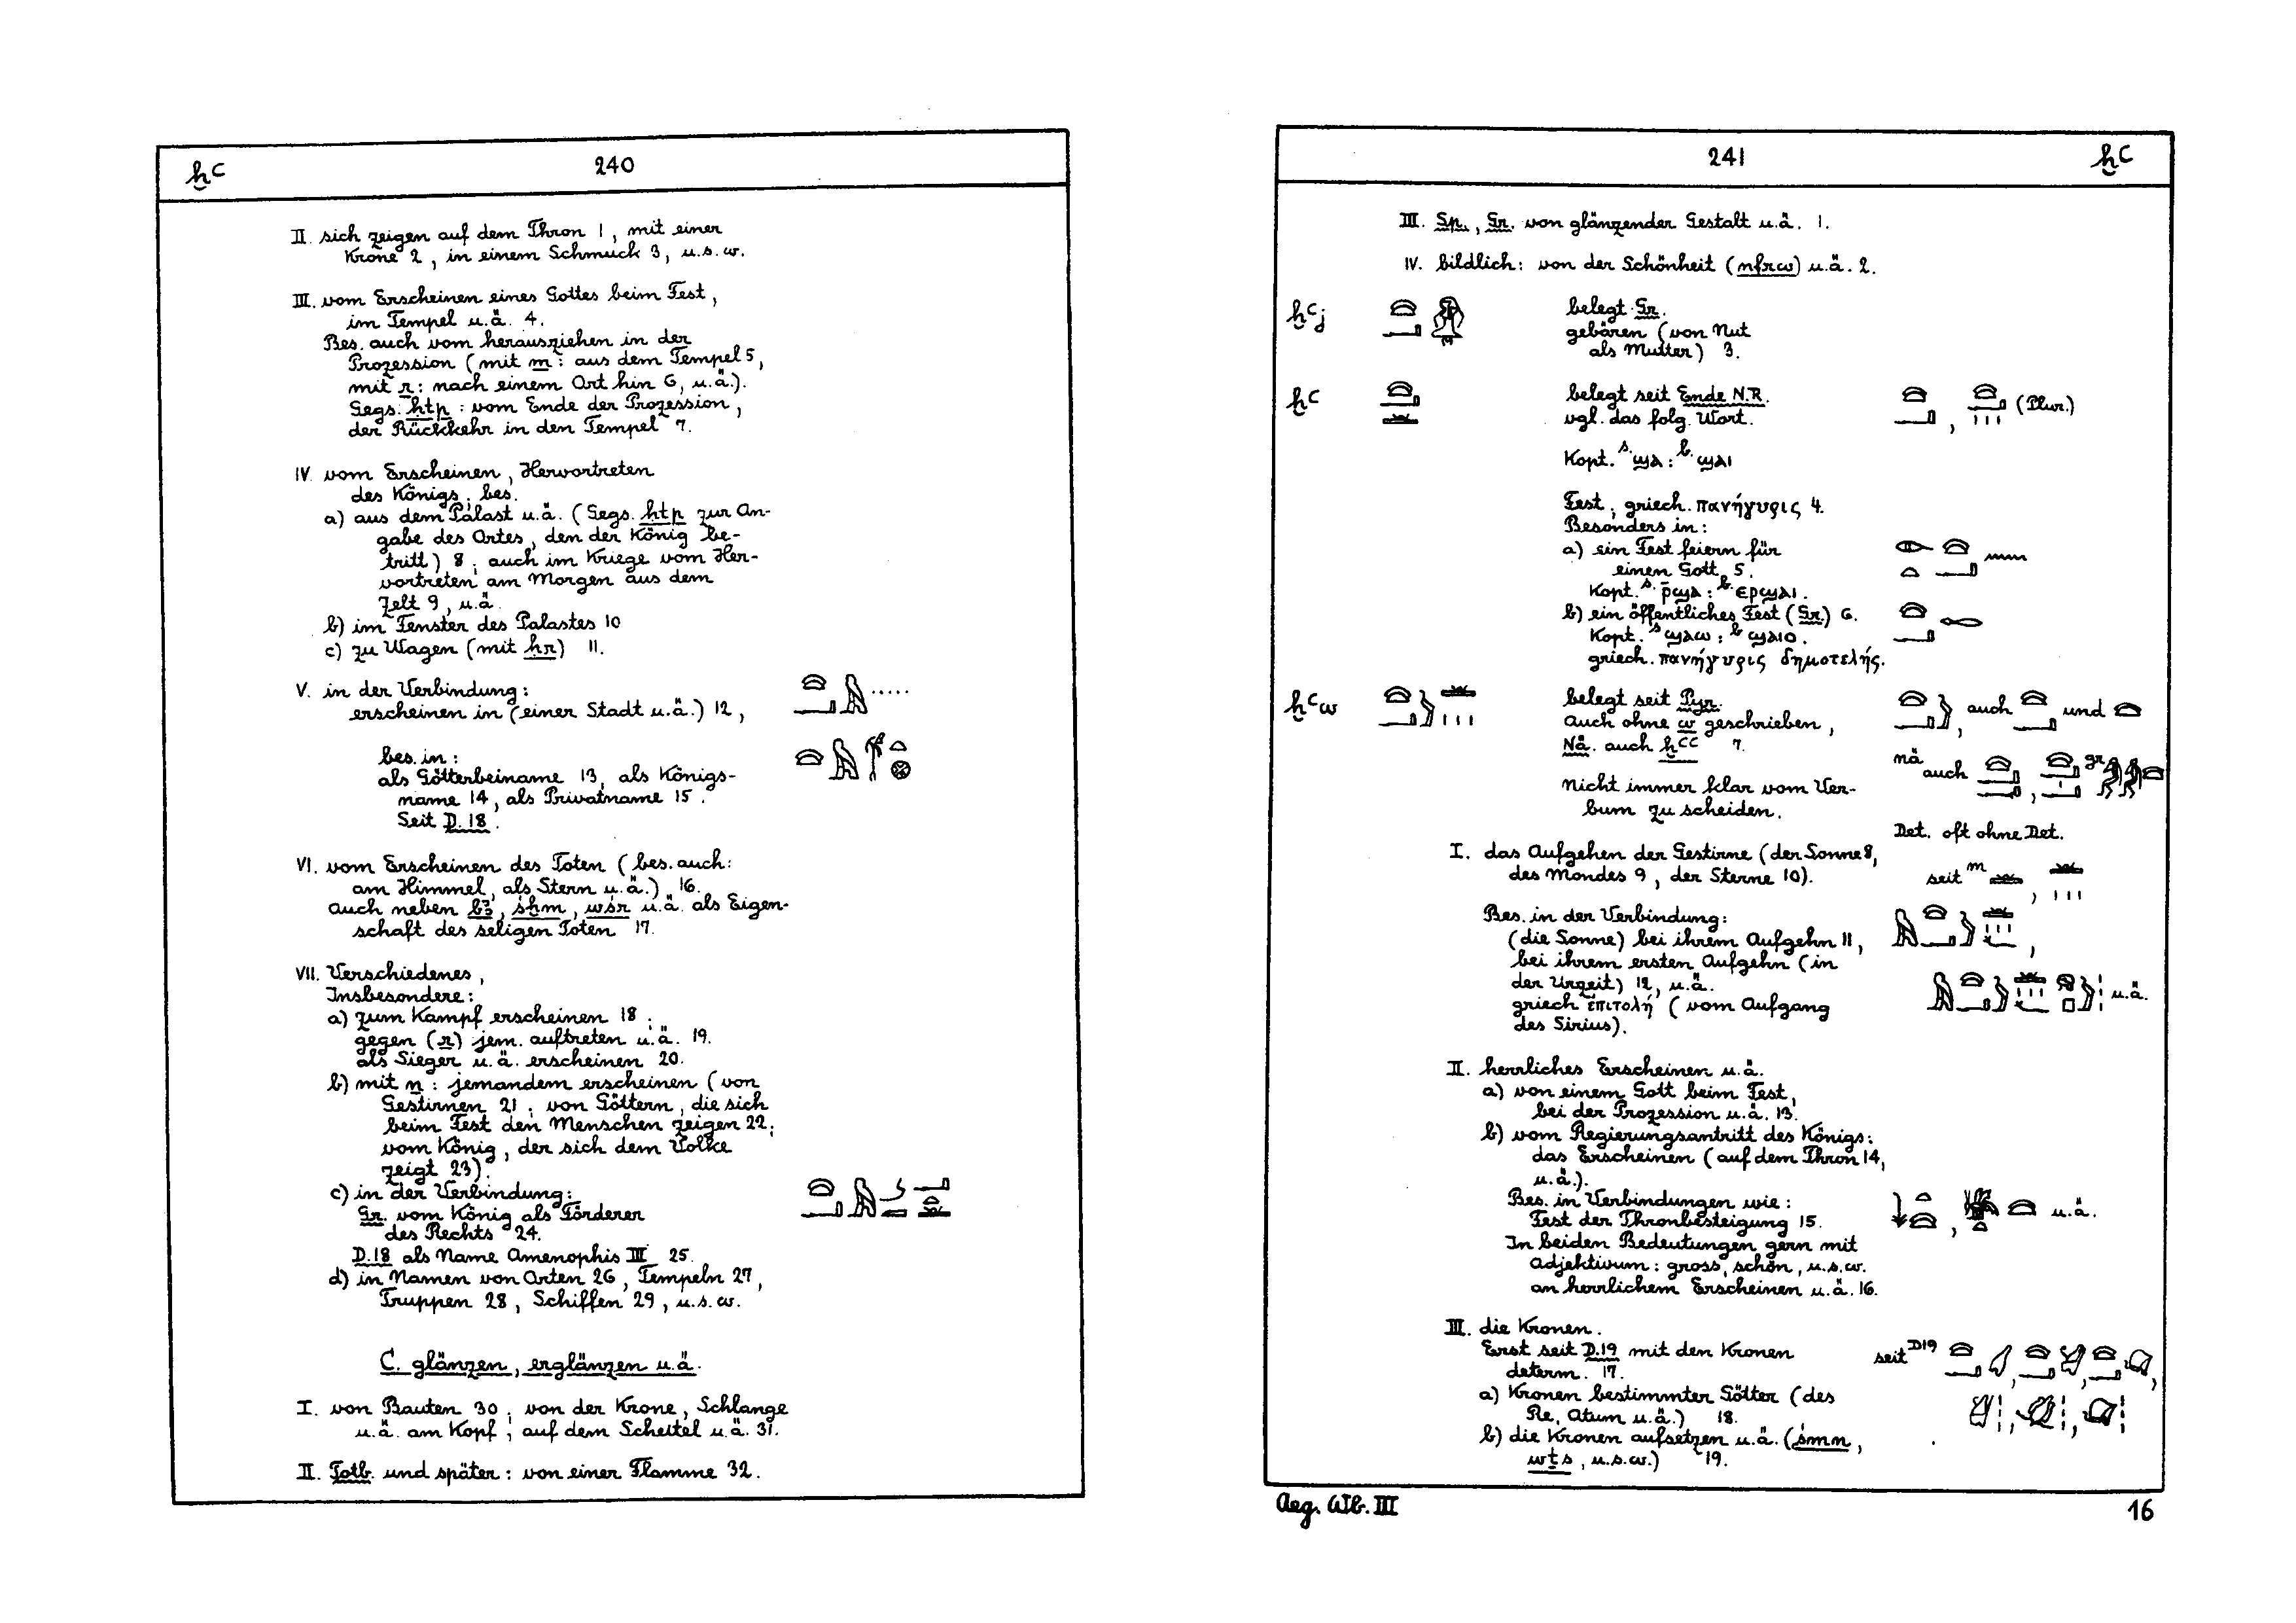 ḫꜥ 240
II. sich zeigen auf dem Thron 1, mit einer
Krone 2, in einem Schmuck 3, u.s.w.
III. vom Erscheinen eines Gottes beim Fest,
im Tempel u.ä. 4.
Bes. auch vom herausziehen in der
Prozession (mit m: aus dem Tempel 5,
mit r: nach einem Ort hin 6, u.ä.).
Gegs. ḥtp: vom Ende der Prozession,
der Rückkehr in den Tempel 7.
IV. vom Erscheinen, Hervortreten
des Königs; bes.
a) aus dem Palast u.ä. (Gegs. ḥtp zur An-
gabe des Ortes, den der König be-
tritt) 8; auch im Kriege vom Her-
vortreten am Morgen aus dem
Zelt 9, u.ä.
b) im Fenster des Palastes 10
c) zu Wagen (mit ḥr) 11.
V. in der Verbindung:
erscheinen in (einer Stadt u.ä.) 12,
bes. in:
als Götterbeiname 13, als Königs-
name 14, als Privatname 15.
Seit D. 18.
VI. vom Erscheinen des Toten (bes. auch:
am Himmel, als Stern u.ä.) 16.
Auch neben bꜣ, sḫm, wsr u.ä. als Eigen-
schaft des seligen Toten 17.
VII. Verschiedenes,
Insbesondere:
a) zum Kampf erscheinen 18;
gegen (r) jem. auftreten u.ä. 19.
als Sieger u.ä. erscheinen 20.
b) mit n: jemandem erscheinen (von
Gestirnen 21; von Göttern, die sich
beim Fest den Menschen zeigen 22;
vom König, der sich dem Volke
zeigt 23).
c) in der Verbindung:
Gr. vom König als Förderer
des Rechts 24.
D.18 als Name Amenophis III 25.
d) in Namen von Orten 26, Tempeln 27,
Truppen 28, Schiffen 29, u.s.w.
C. glänzen, erglänzen u.ä.
I. von Bauten 30; von der Krone, Schlange
u.ä. am Kopf; auf dem Scheitel u.ä. 31.
II. Totb. und später: von einer Flamme 32.
241 ḫꜥ
III. Sp., Gr. von glänzender Gestalt u.ä. 1.
IV. bildlich: von der Schönheit (nfrw) u.ä. 2.
ḫꜥj belegt Gr.
gebären (von Nut
als Mutter) 3.
ḫꜥ belegt seit Ende N.R. , (Plur.)
vgl. das folg. Wort.
Kopt. s. ϣⲁ: b. ϣⲁⲓ
Fest, griech. πανήγυρις 4.
Besonders in:
a) ein Fest feiern für
einen Gott 5.
Kopt. s. ⲣ̄ϣⲁ: b. ⲉⲣϣⲁⲓ.
b) ein öffentliches Fest (Gr.) 6.
Kopt. s ϣⲁⲱ: b ϣⲁⲓⲟ.
griech. πανήγυρις δημοτελής.
ḫꜥw belegt seit Pyr. , auch und
Auch ohne w geschrieben,
Nä. auch ḫꜥꜥ 7. nä auch , gr
Nicht immer klar vom Ver-
bum zu scheiden.
Det. oft ohne Det.
I. das Aufgehen der Gestirne (der Sonne 8,
des Mondes 9, der Sterne 10). seit m ,
Bes. in der Verbindung:
(die Sonne) bei ihrem Aufgehn 11, ,
bei ihrem ersten Aufgehn (in
der Urzeit) 12, u.ä. u.ä.
griech ἐπιτολή (vom Aufgang
des Sirius).
II. herrliches Erscheinen u.ä.
a) von einem Gott beim Fest,
bei der Prozession u.ä. 13.
b) vom Regierungsantritt des Königs:
das Erscheinen (auf dem Thron 14,
u.ä.).
Bes. in Verbindungen wie: , u.ä.
Fest der Thronbesteigung 15.
In beiden Bedeutungen gern mit
Adjektivum: gross, schön, u.s.w.
an herrlichem Erscheinen u.ä. 16.
III. die Kronen.
Erst seit D.19 mit den Kronen seit D19
determ. 17.
a) Kronen bestimmter Götter (des
Re, Atum u.ä.) 18.
b) die Kronen aufsetzen u.ä. (smn,
wṯs, u.s.w.) 19.
Aeg. Wb. III 16